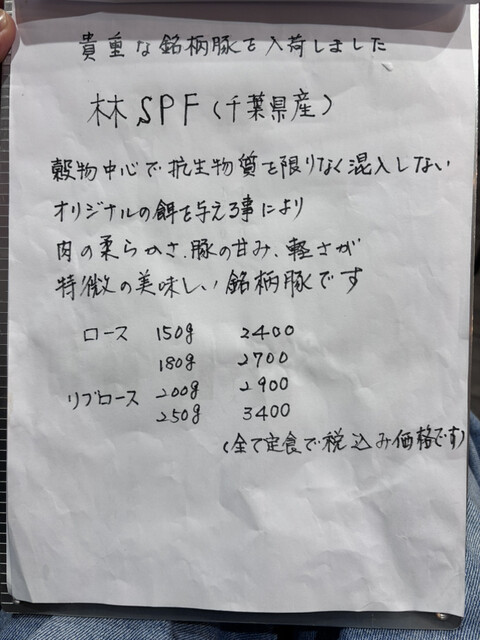 貴重な銘柄豚を入荷しました
林SPF(千葉県産)
穀物中心で抗生物質を限りなく混入しない
オリジナルの餌を与える事により
肉の柔らかさ、豚の甘み、軽さが
特徴の美味しい銘柄豚です
ロース 150g 2400
180g 2700
リブロース 200g 2900
250g 3400
(全て定食で税込み価格です)